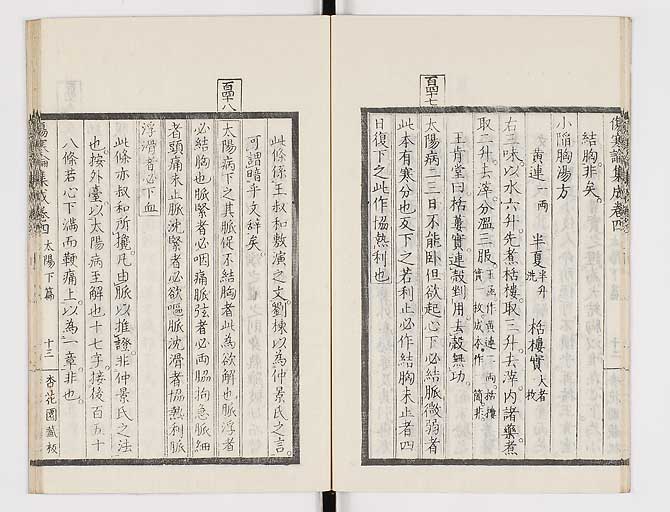 傷寒論集成卷四
結胸非矣。
小陷胸湯方
黄連一兩 半夏半升洗 栝樓實大者一枚
右三味。以水六升。先煮栝樓。取三升。去滓。内諸藥。煮
取二升。去滓。分溫三服。
王肯堂曰栝蔞實連殼剉用去殼無功。
百四十七
太陽病二三日不能卧但欲起心下必結脈微弱者
此本有寒分也反下之若利止必作結胸未止者四
日復下之此作協熱利也
此條係王叔和敷演之文。劉棟以為仲景氏之言。
可謂暗乎文辭矣
百四十八
太陽病下之其脈促不結胸者此為欲解也脈浮者
必結胸也脈緊者必咽痛脈弦者必兩脇拘急脈細
者頭痛未止脈沈緊者必欲嘔脈沈滑者協熱利脈
浮滑者必下血
此條亦叔和所攙。凡由脈以推證。非仲景氏之法
也。按外臺。以太陽病至解也十七字。接後百五十
八條若心下滿而鞕痛上。以為一章。非也。
傷寒論集成卷四 太陽下篇 十三 杏花園藏板